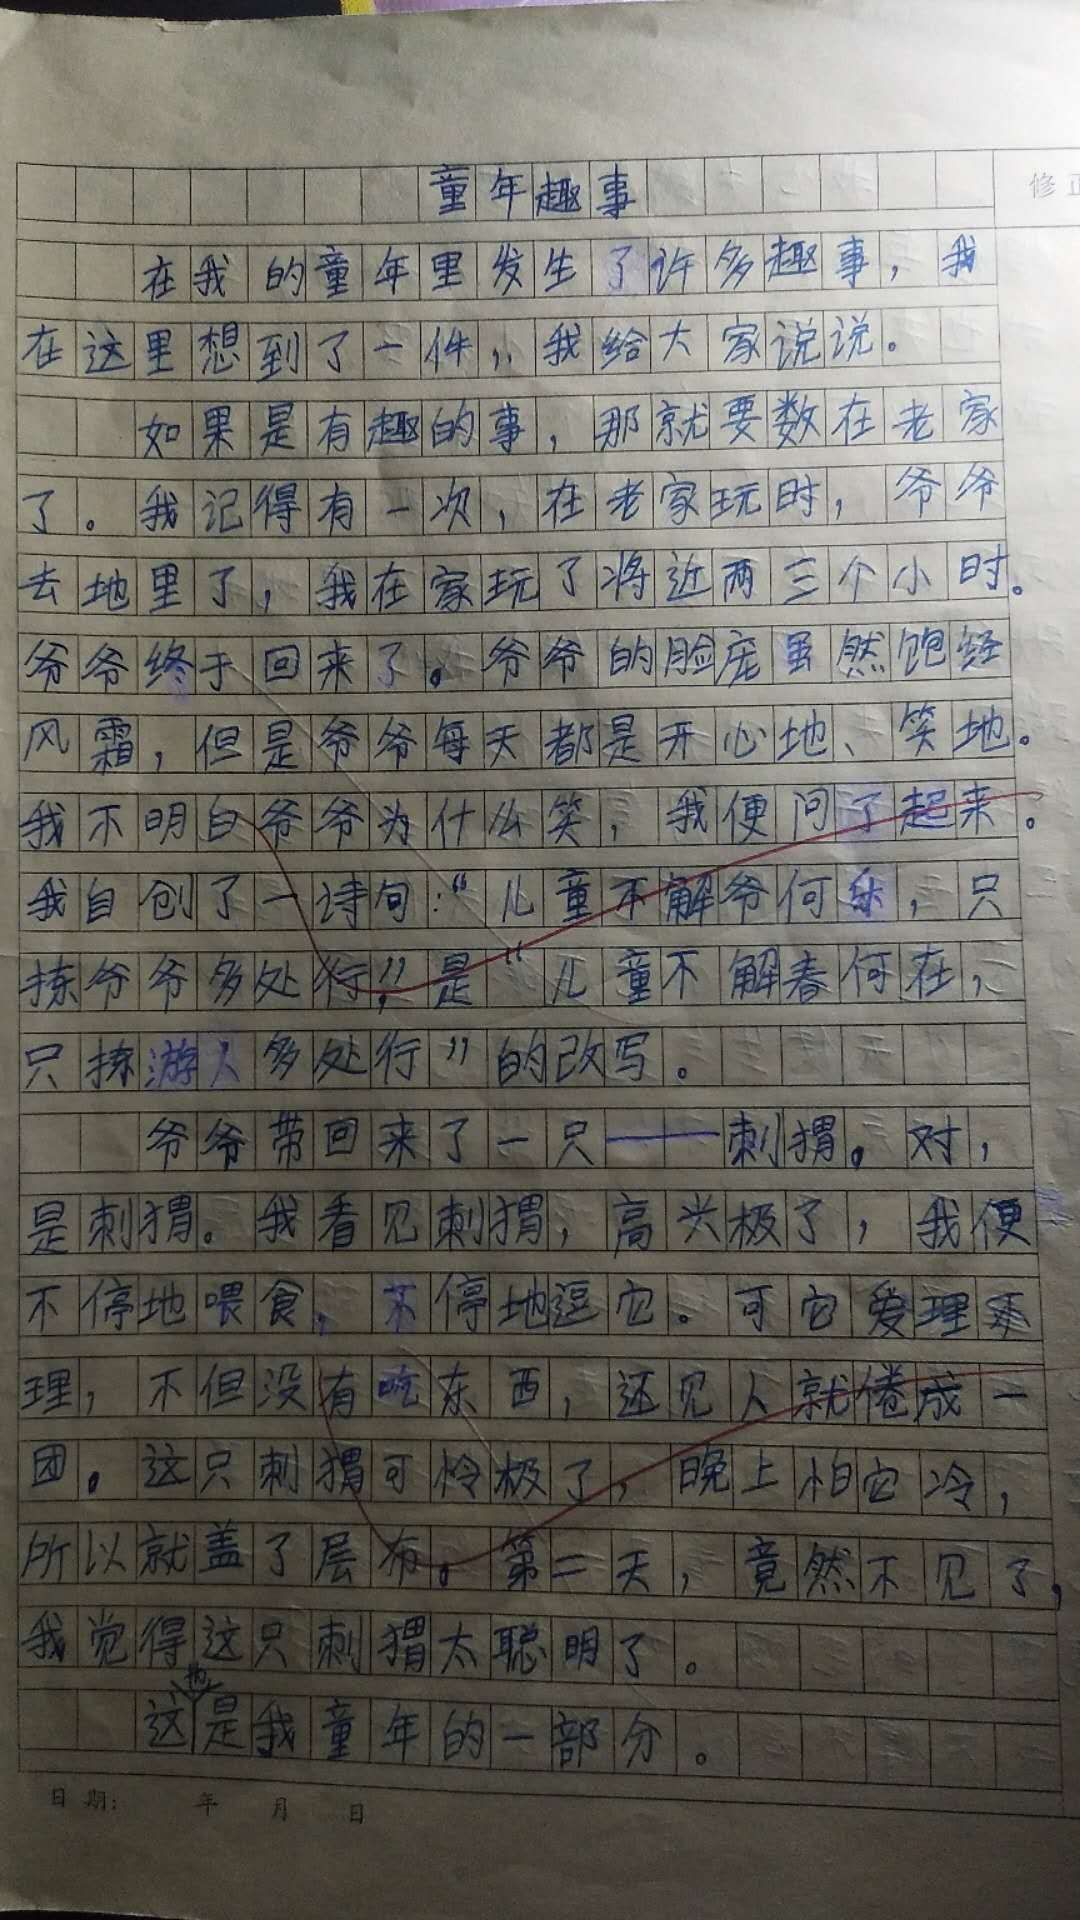 修正
童年趣事
在我的童年里发生了许多趣事，我
在这里想到了一件，，我给大家说说。
如果是有趣的事，那就要数在老家
了。我记得有一次，在老家玩时，爷爷
去地里了，我在家玩了将近两三个小时。
爷爷终于回来了。爷爷的脸庞虽然饱经
风霜，但是爷爷每天都是开心地、笑地。
我不明白爷爷为什么笑，我便问了起来。
我自创了一诗句：“儿童不解爷何乐，只
拣爷爷多处行”，是“儿童不解春何在，
只拣游人多处行”的改写。
爷爷带回来了一只——刺猬。对，
是刺猬。我看见刺猬，高兴极了，我便
不停地喂食，不停地逗它。可它爱理不
理，不但没有吃东西，还见人就倦成一
团。这只刺猬可怜极了，晚上怕它冷，
所以就盖了层布。第二天，竟然不见了，
我觉得这只刺猬太聪明了。
这也是我童年的一部分。
日期： 年 月 日